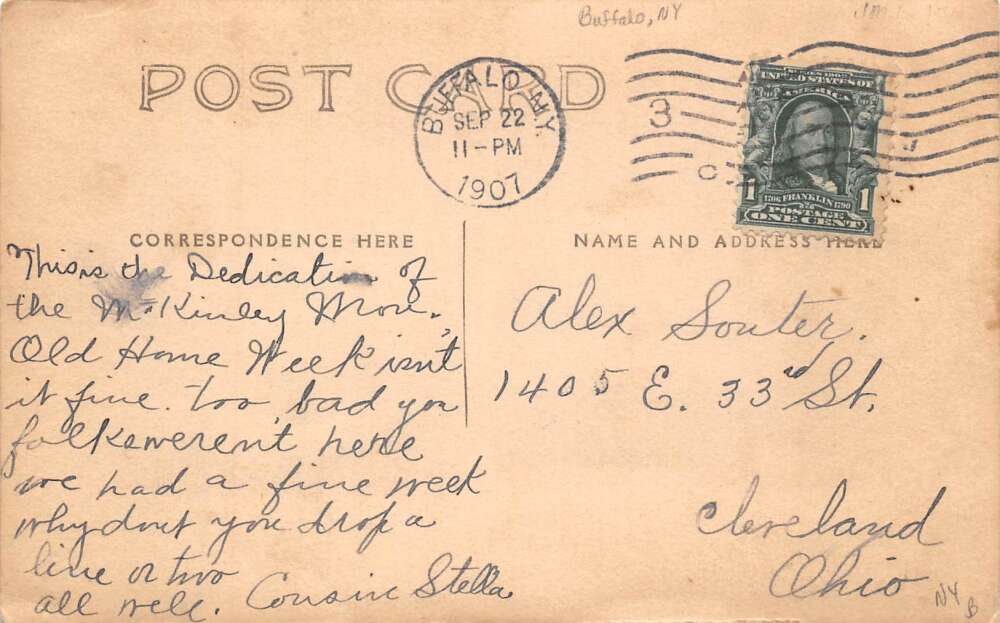 Buffalo, NY
POST CARD
BUFFALO, N.Y.
SEP 22
11-PM
1907
3
C
SERIES 1902
UNITED STATES OF
AMERICA
1706 FRANKLIN 1790
1 POSTAGE 1
ONE CENT
CORRESPONDENCE HERE
NAME AND ADDRESS HERE
This is the Dedication of
the McKinley Mon.,
Old Home Week isnt
it fine. too bad you
folks weren't here
we had a fine week
why dont you drop a
line or two
all well. Cousin Stella
Alex Souter.
1405 E. 33rd St.
Cleveland
Ohio
NY
B